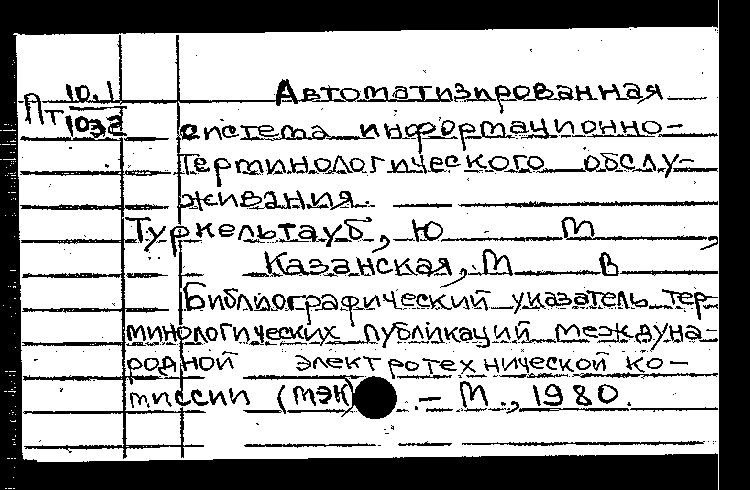 Пт 10.1 Автоматизированная
1032 система информационно-
терминологического обслу-
живания.
Туркельтауб, Ю М ,
Казанская, М В
Библиографический указатель тер-
минологических публикаций междуна-
родной электротехнической ко-
миссии (МЭК) .- М., 1980.